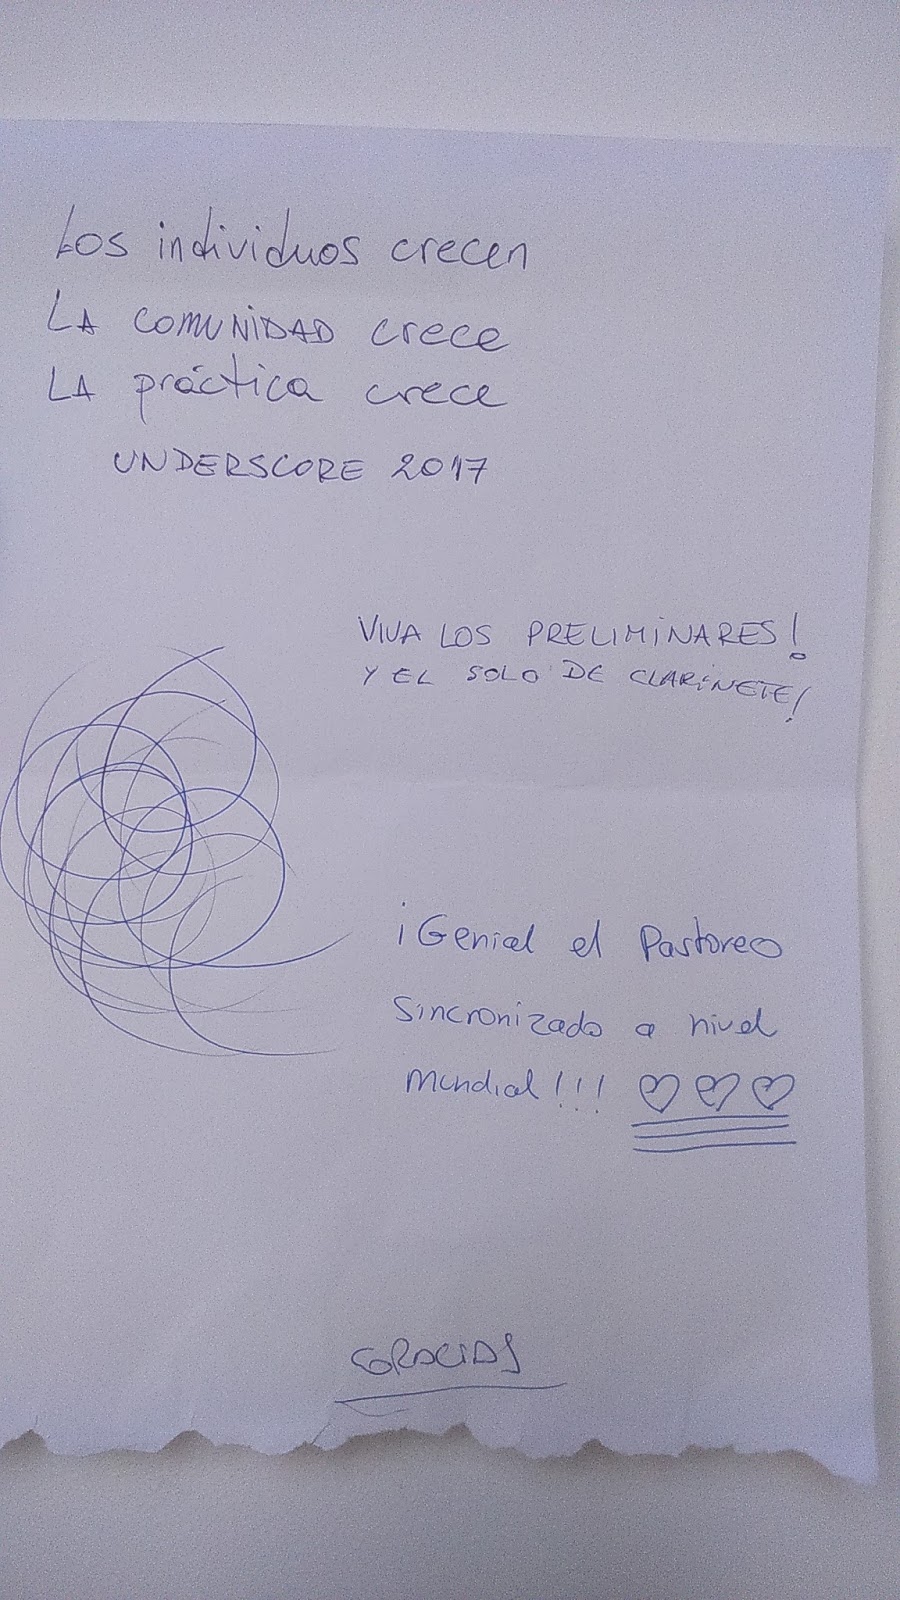 Los individuos crecen
LA COMUNIDAD crece
LA práctica crece
UNDERSCORE 2017
VIVA LOS PRELIMINARES!
Y EL SOLO DE CLARINETE!
¡Genial el Pastoreo
Sincronizado a nivel
mundial!!! ♡♡♡
GRACIAS